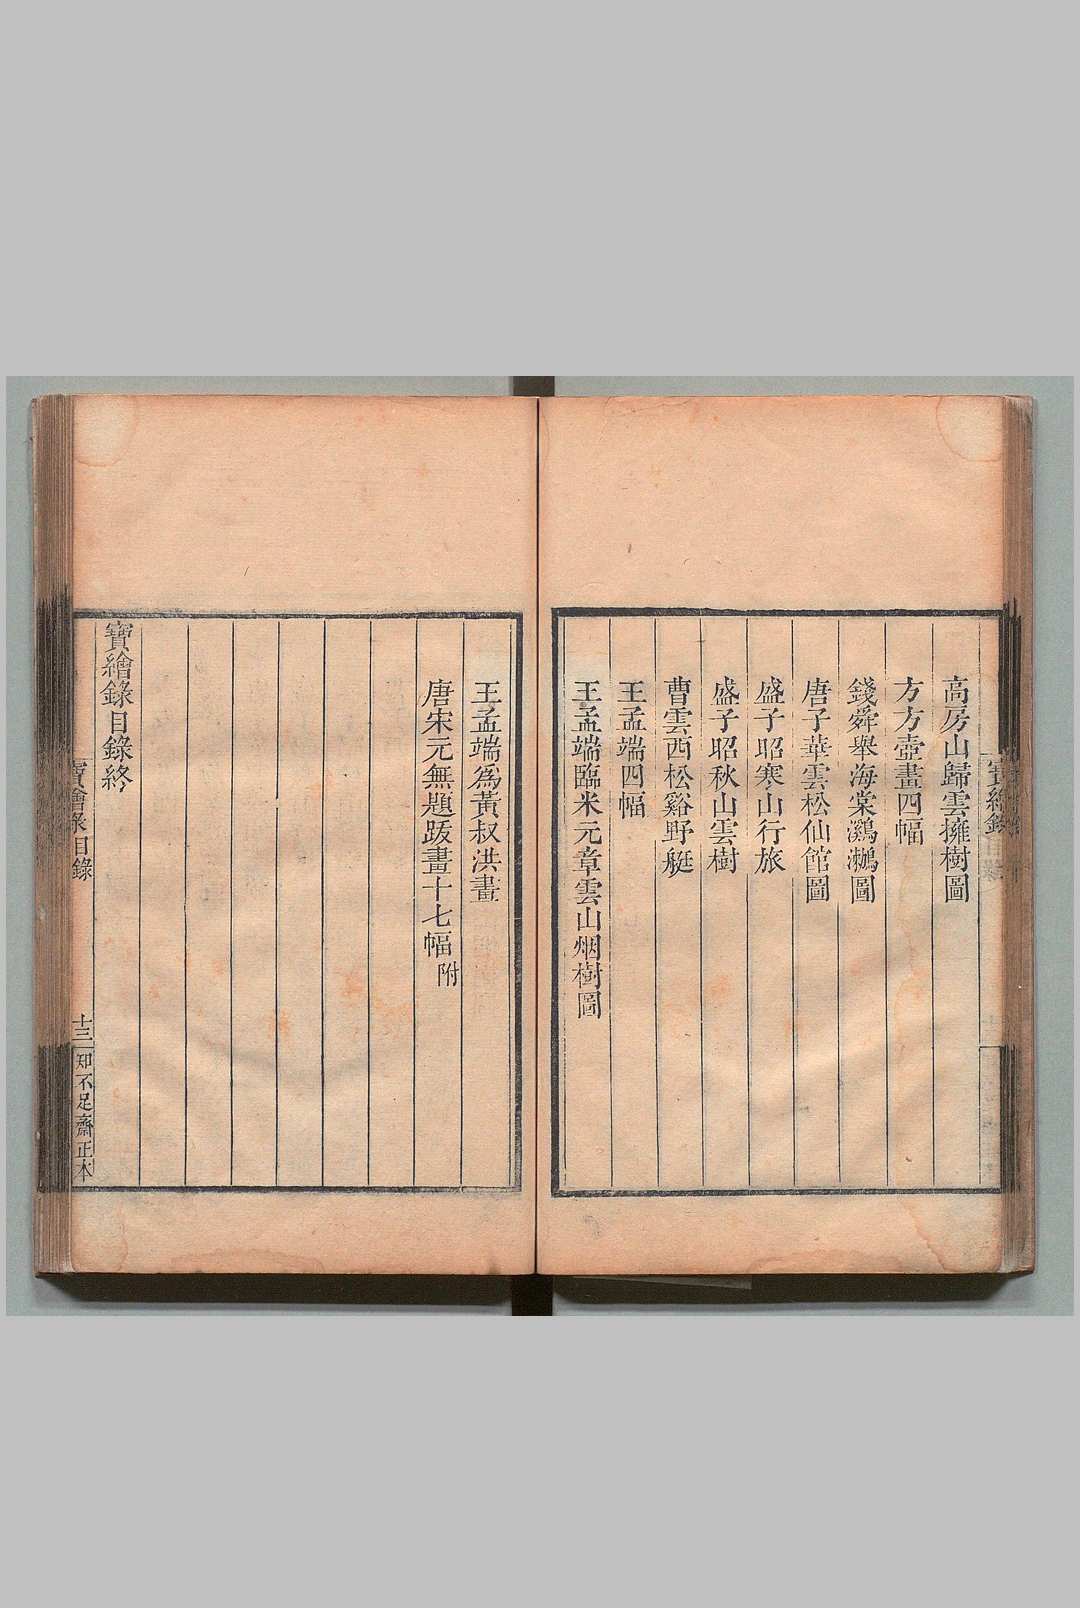 高房山歸雲擁樹圖
方方壺畫四幅
錢舜舉海棠鸂鶒圖
唐子華雲松仙館圖
盛子昭寒山行旅
盛子昭秋山雲樹
曹雲西松谿野艇
王孟端四幅
王孟端臨米元章雲山烟樹圖
王孟端為黃叔洪畫
唐宋元無題跋畫十七幅附
寶繪錄目錄終
寶繪錄目錄
十三
知不足齋正本